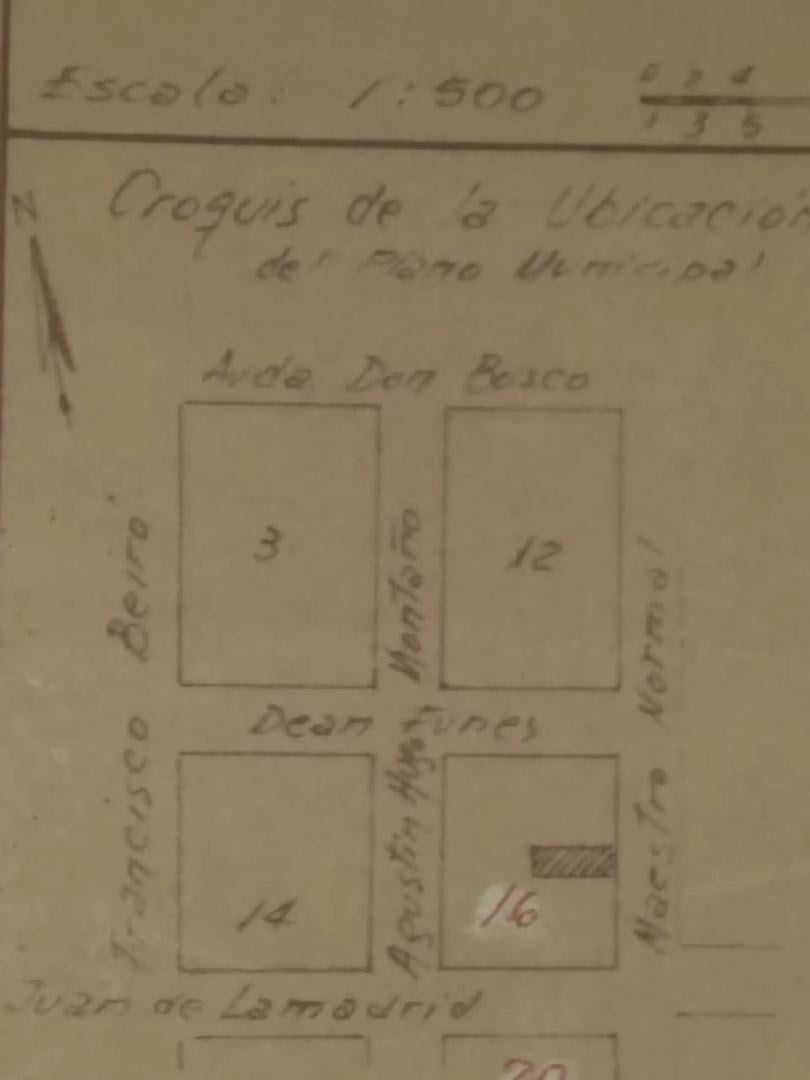 Escala: 1:500
0 2 4
1 3 5
N
Croquis de la Ubicación
del Plano Municipal
Avda Don Bosco
3
12
Francisco Beiró
Montaño
Maestro Normal
Dean Funes
Agustin
14
16
Juan de Lamadrid
20